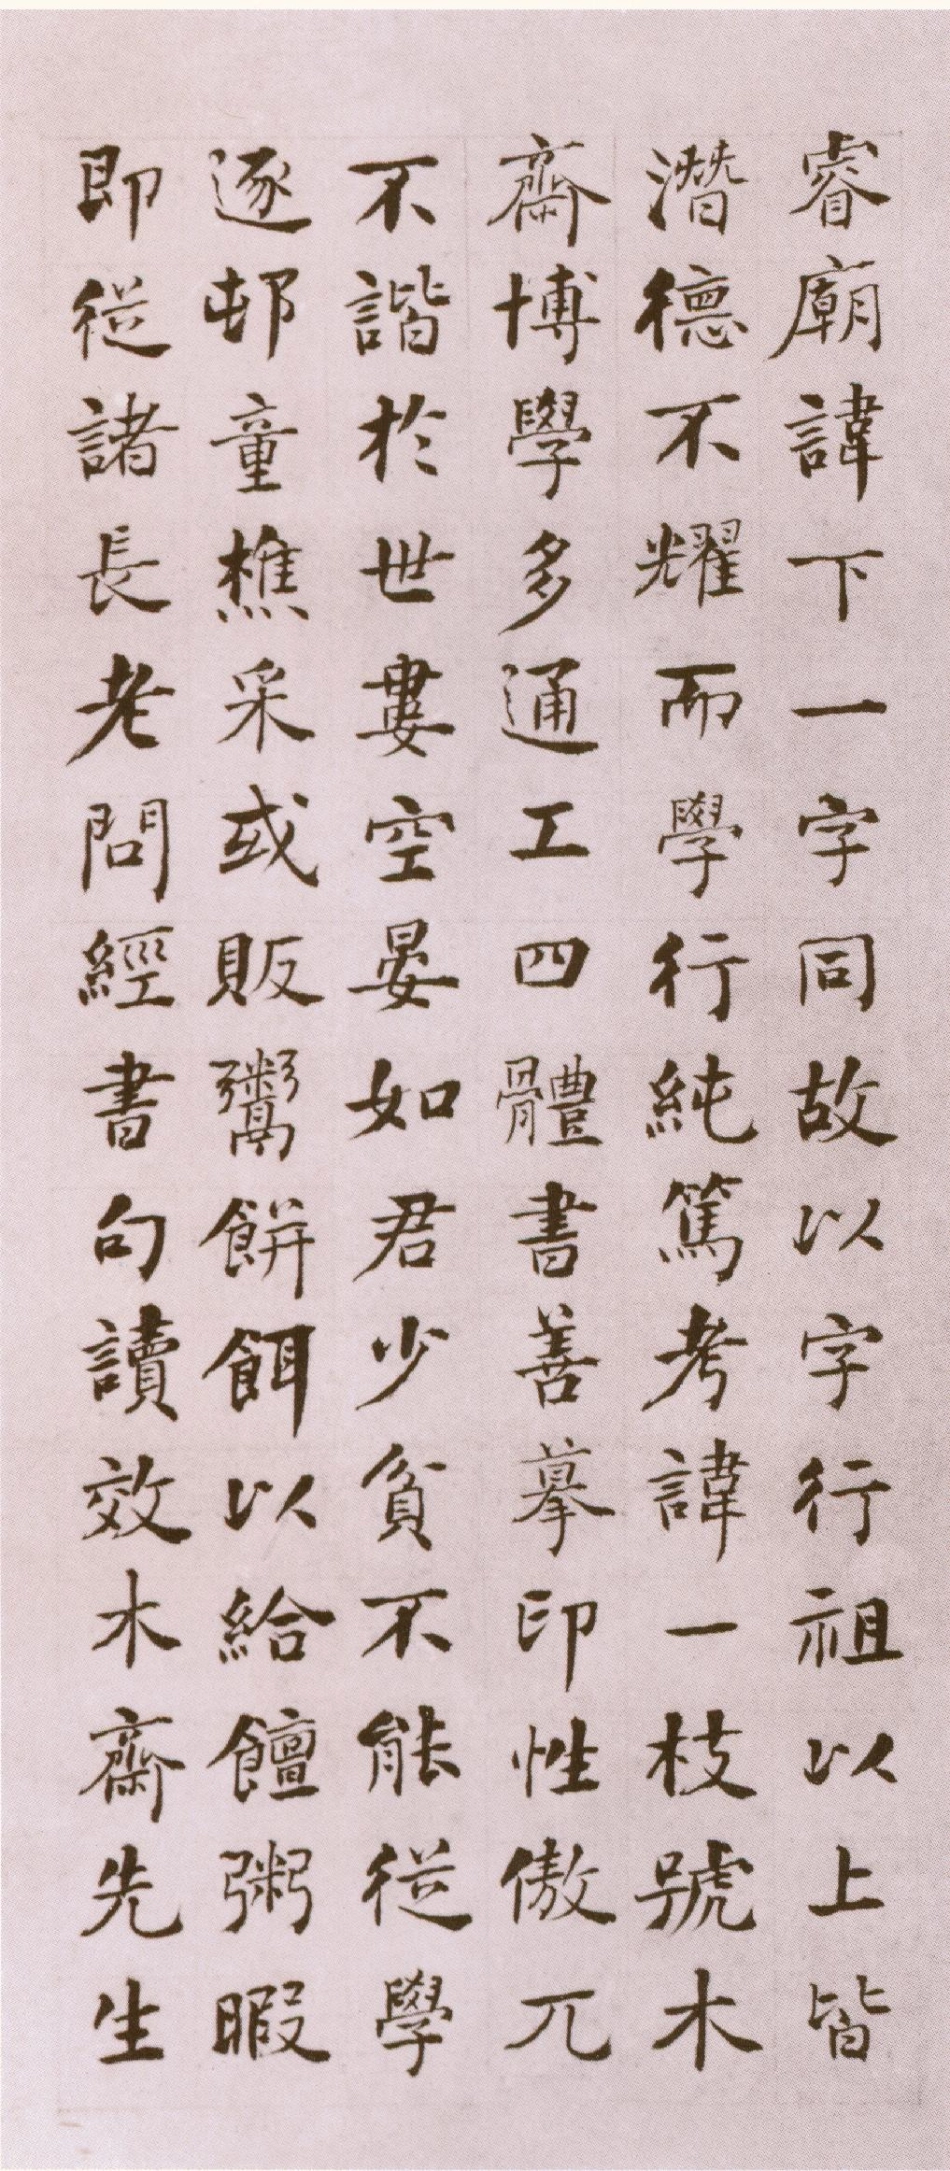 睿廟諱下一字同故以字行祖以上皆
潛德不耀而學行純篤考諱一枝號木
齋博學多通工四體書善摹印性傲兀
不諧於世屢空晏如君少貧不能從學
逐邨童樵采或販鬻餅餌以給饘粥暇
即從諸長老問經書句讀效木齋先生